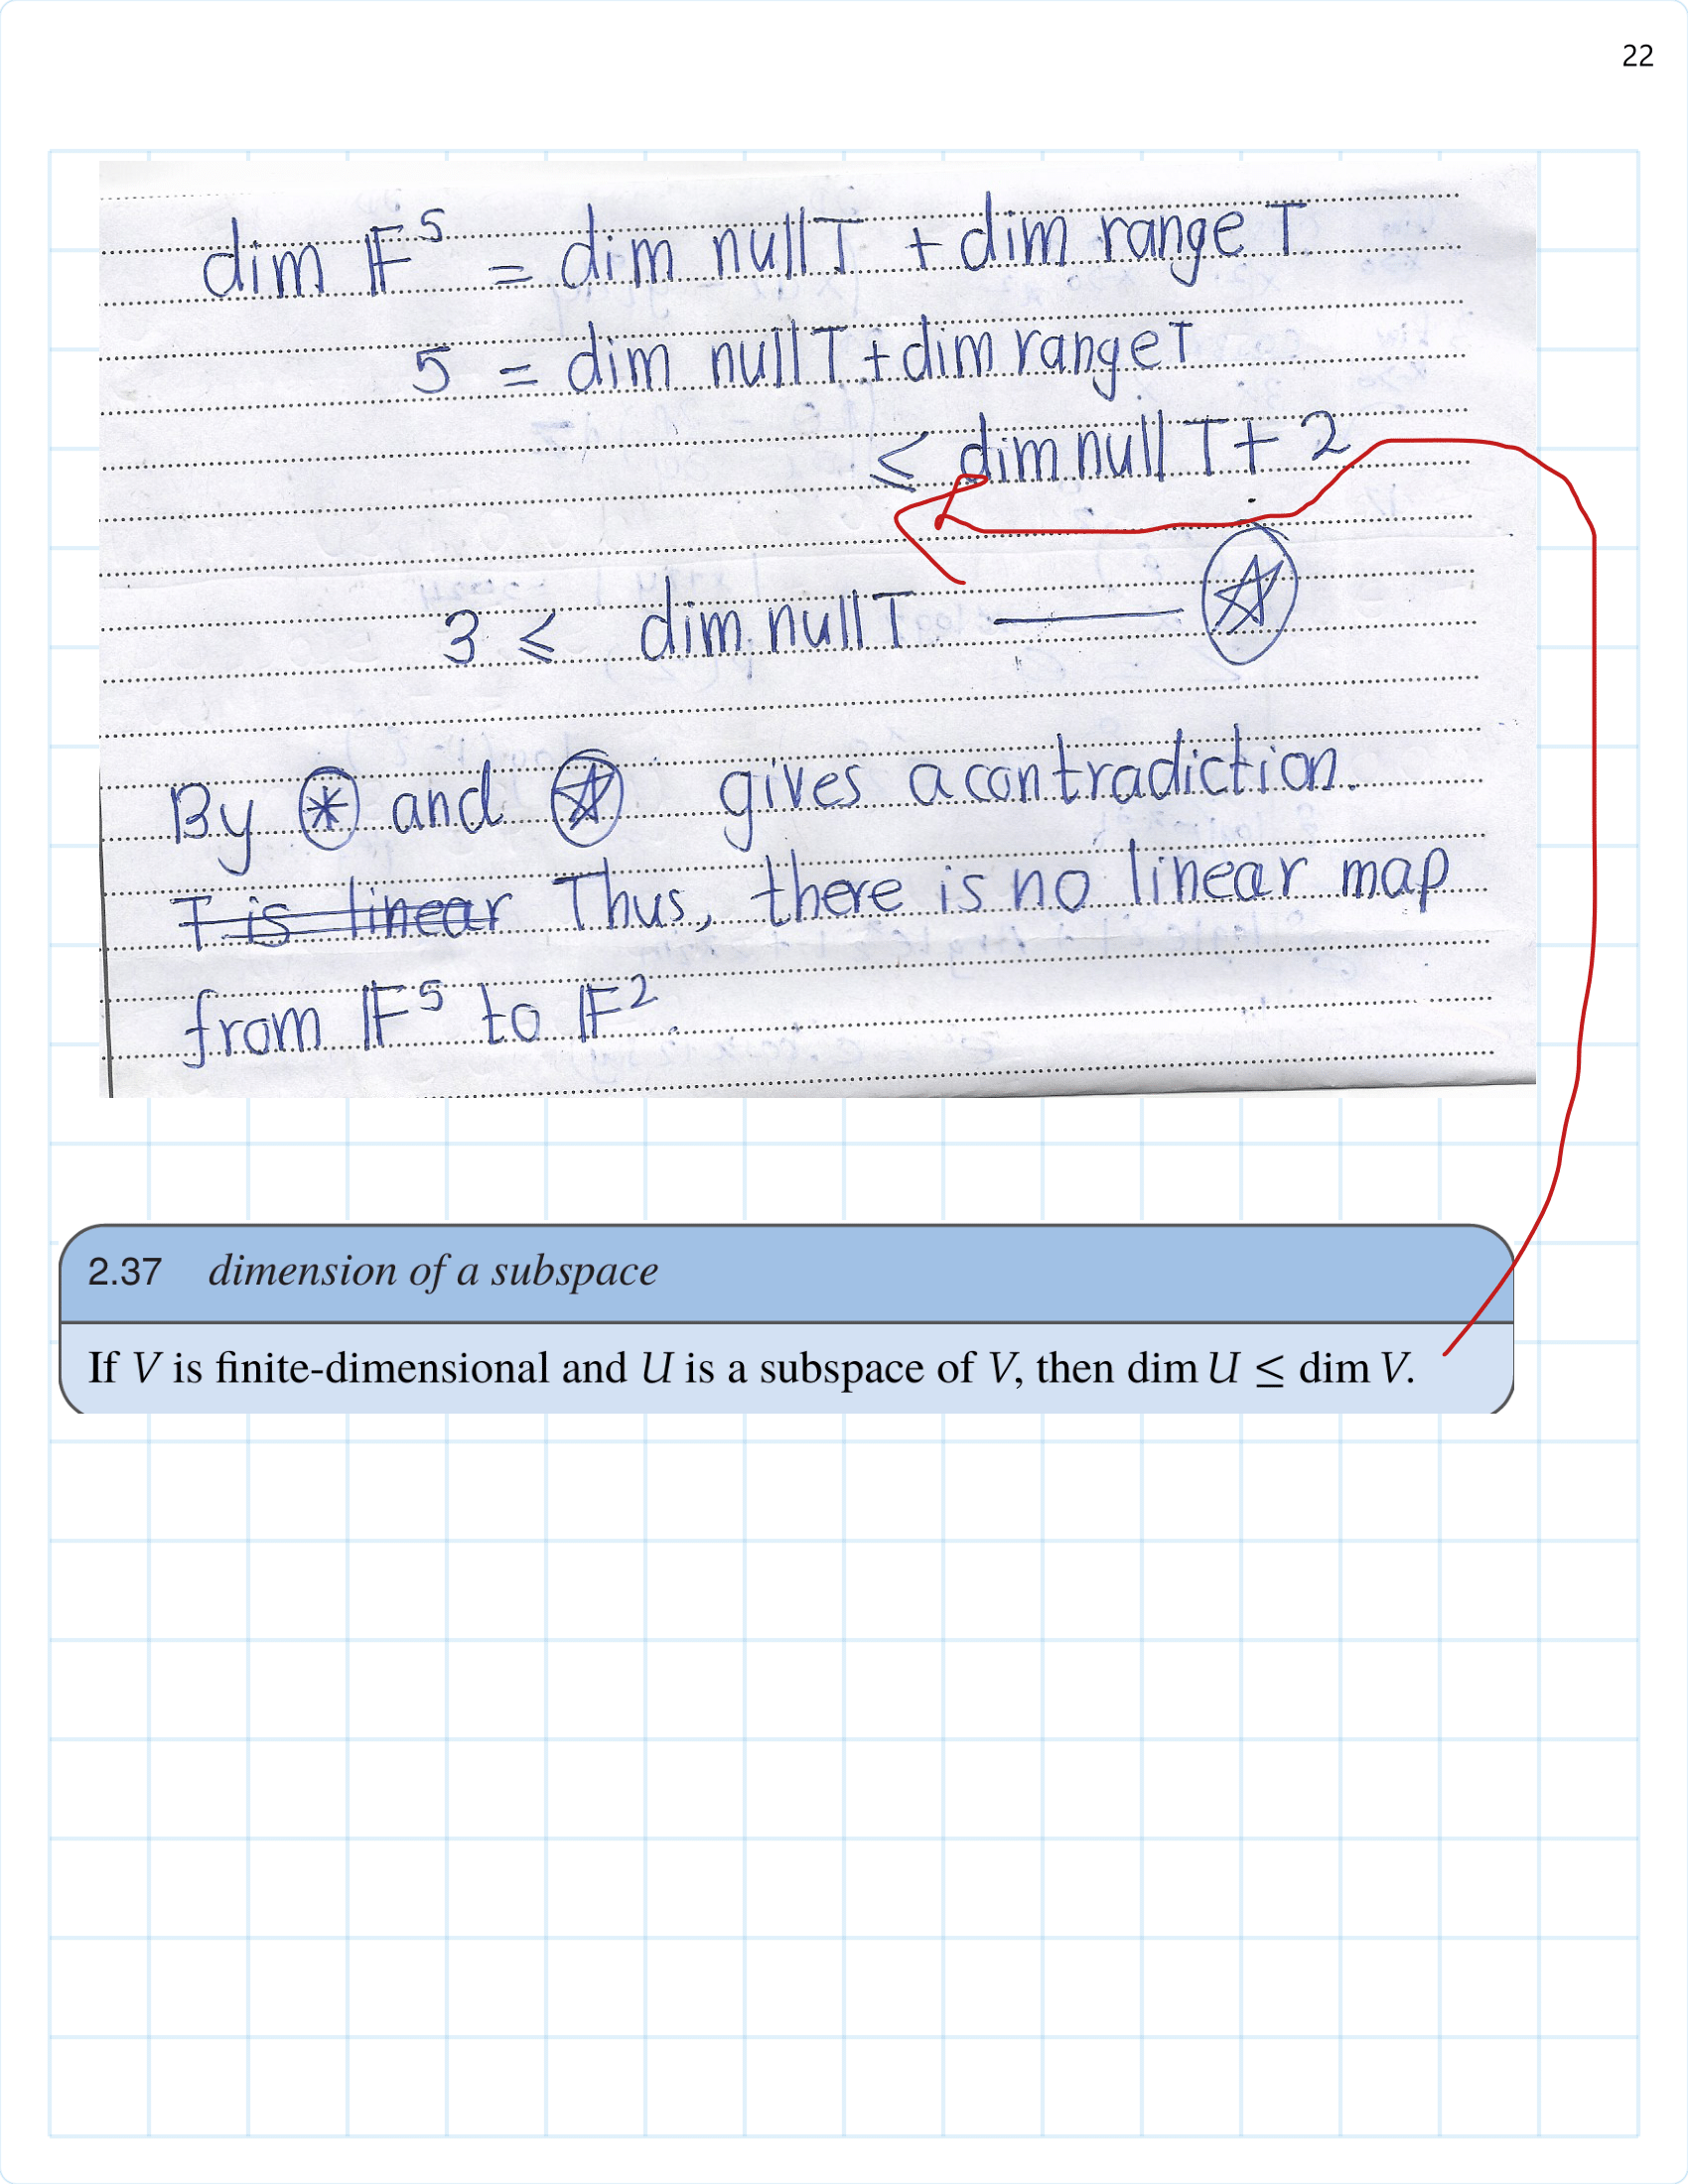 22
dim 𝔽⁵ = dim null T + dim range T
5 = dim null T + dim range T
≤ dim null T + 2
3 ≤ dim null T ——— ☆
By ⊛ and ☆ gives a contradiction.
T is linear Thus, there is no linear map
from 𝔽⁵ to 𝔽².
2.37 dimension of a subspace
If V is finite-dimensional and U is a subspace of V, then dim U ≤ dim V.